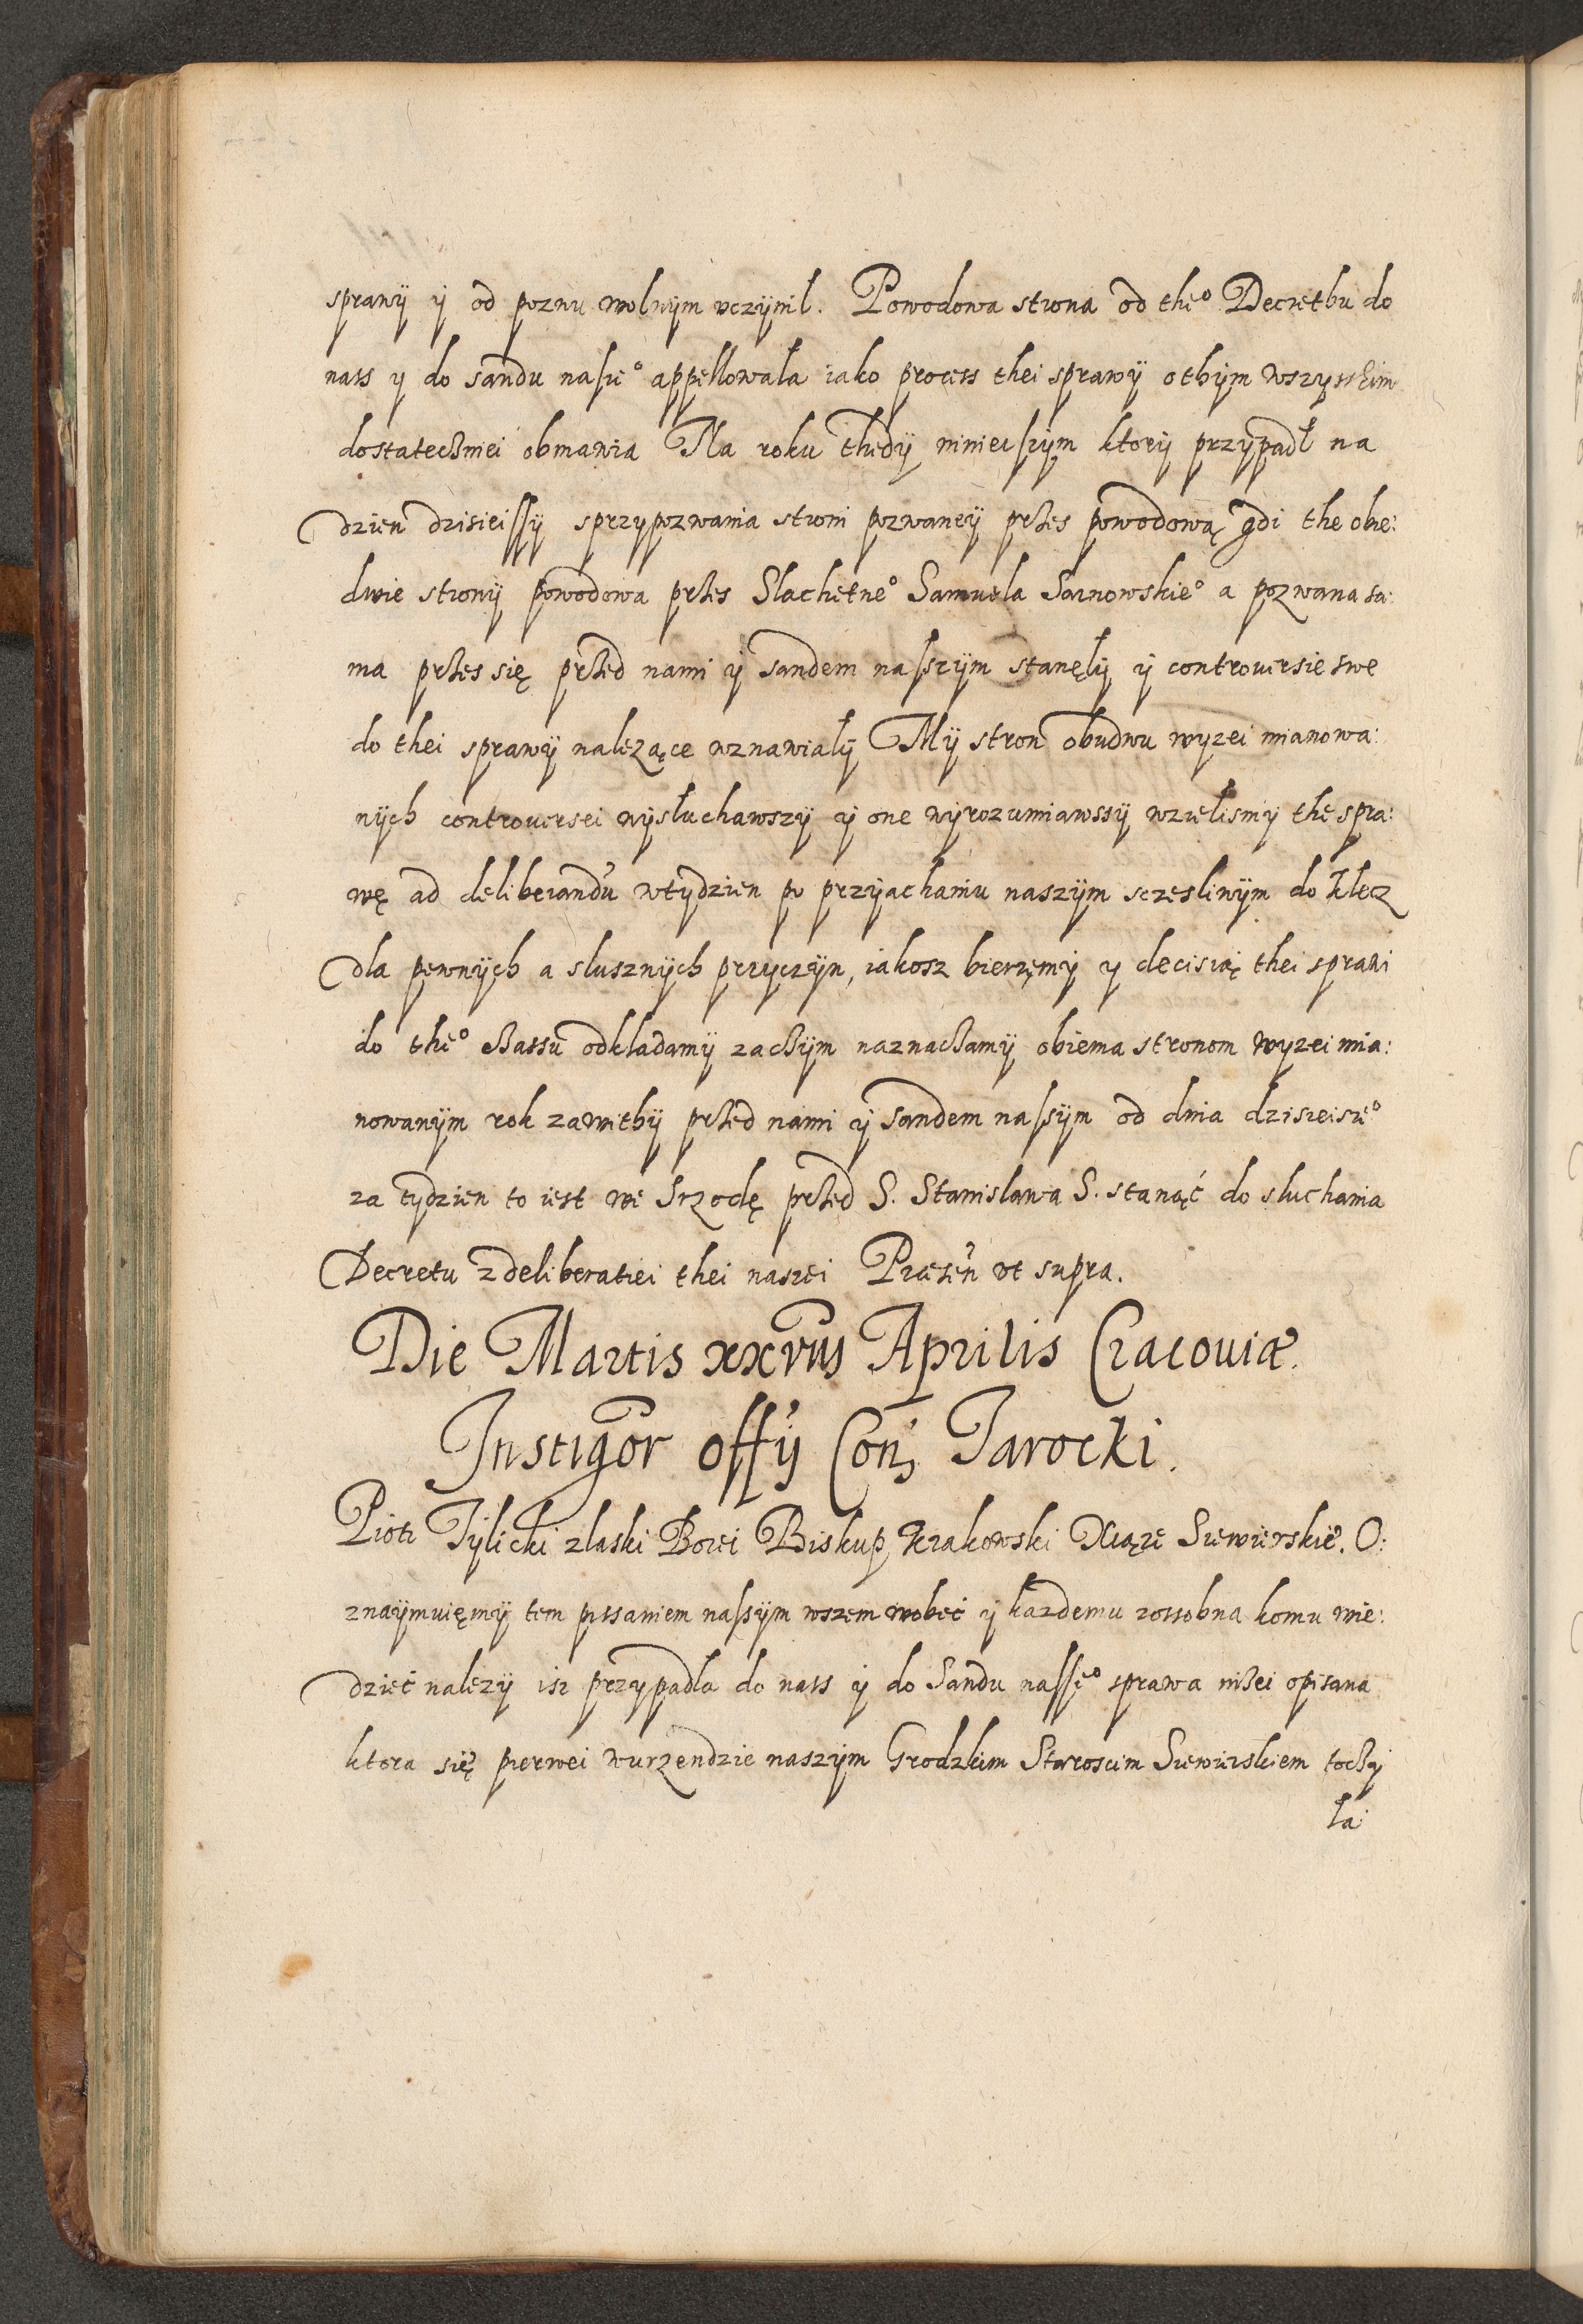 sprawÿ ÿ od pozwu wolnÿm vczÿnil. Powodowa strona od the° Decrethu do
nass y do sandu nasze° appellowała iako process thei sprawÿ othÿm wszystkim
dostatecżniei obmawia Na roku thedÿ ninieiszÿm ktorÿ przÿpadł na
dzień dzisieissÿ sprzypozwania stroni pozwaneÿ przes powodową gdi the obie:
dwie stronÿ powodowa przes Slachetne° Samuela Sarnowskie° a pozwana sa:
ma przes się przed nami ÿ sandem naszÿm stanęlÿ ÿ controversie swe
do thei sprawÿ nalezące wznawialÿ Mÿ stron obudwu wyzei mianowa:
nÿch controversei wÿsłuchawszÿ ÿ one wÿrozumiawssÿ wzielismÿ the spra:
wę ad deliberandu wtydzien po przÿachaniu naszÿm sczesliwÿm do Klecz
dla pewnÿch a slusznÿch przyczÿn, iakosz bierzemÿ y decisią thei sprawi
do the° cżassu odkladamÿ zacżÿm naznacżamÿ obiema stronom wyzei mia:
nowanÿm rok zawithÿ przed nami ÿ sandem nasszÿm od dnia dzisieisze°
za tydzien to iest we Srzodę przed S. Stanislawa S. stanąć do sluchania
Decretu z deliberatiei thei naszei Præsen vt supra.
Die Martis xxvııı Aprilis Cracouiæ.
Instigor offÿ Con Jarocki.
Piotr Tÿlicki zlaski Bozei Biskup Krakowski Xiąze Siewierskie. O:
znaÿmuięmÿ tem pissaniem nasszÿm wszem wobec ÿ kazdemu zossobna komu wie:
dzieć nalezÿ isz przypadla do nass ÿ do Sandu nassze° sprawa niżei opisana
ktora się pierwei wurzendzie naszÿm Grodzkim Staroscim Siewierskiem tocżÿ
ła: